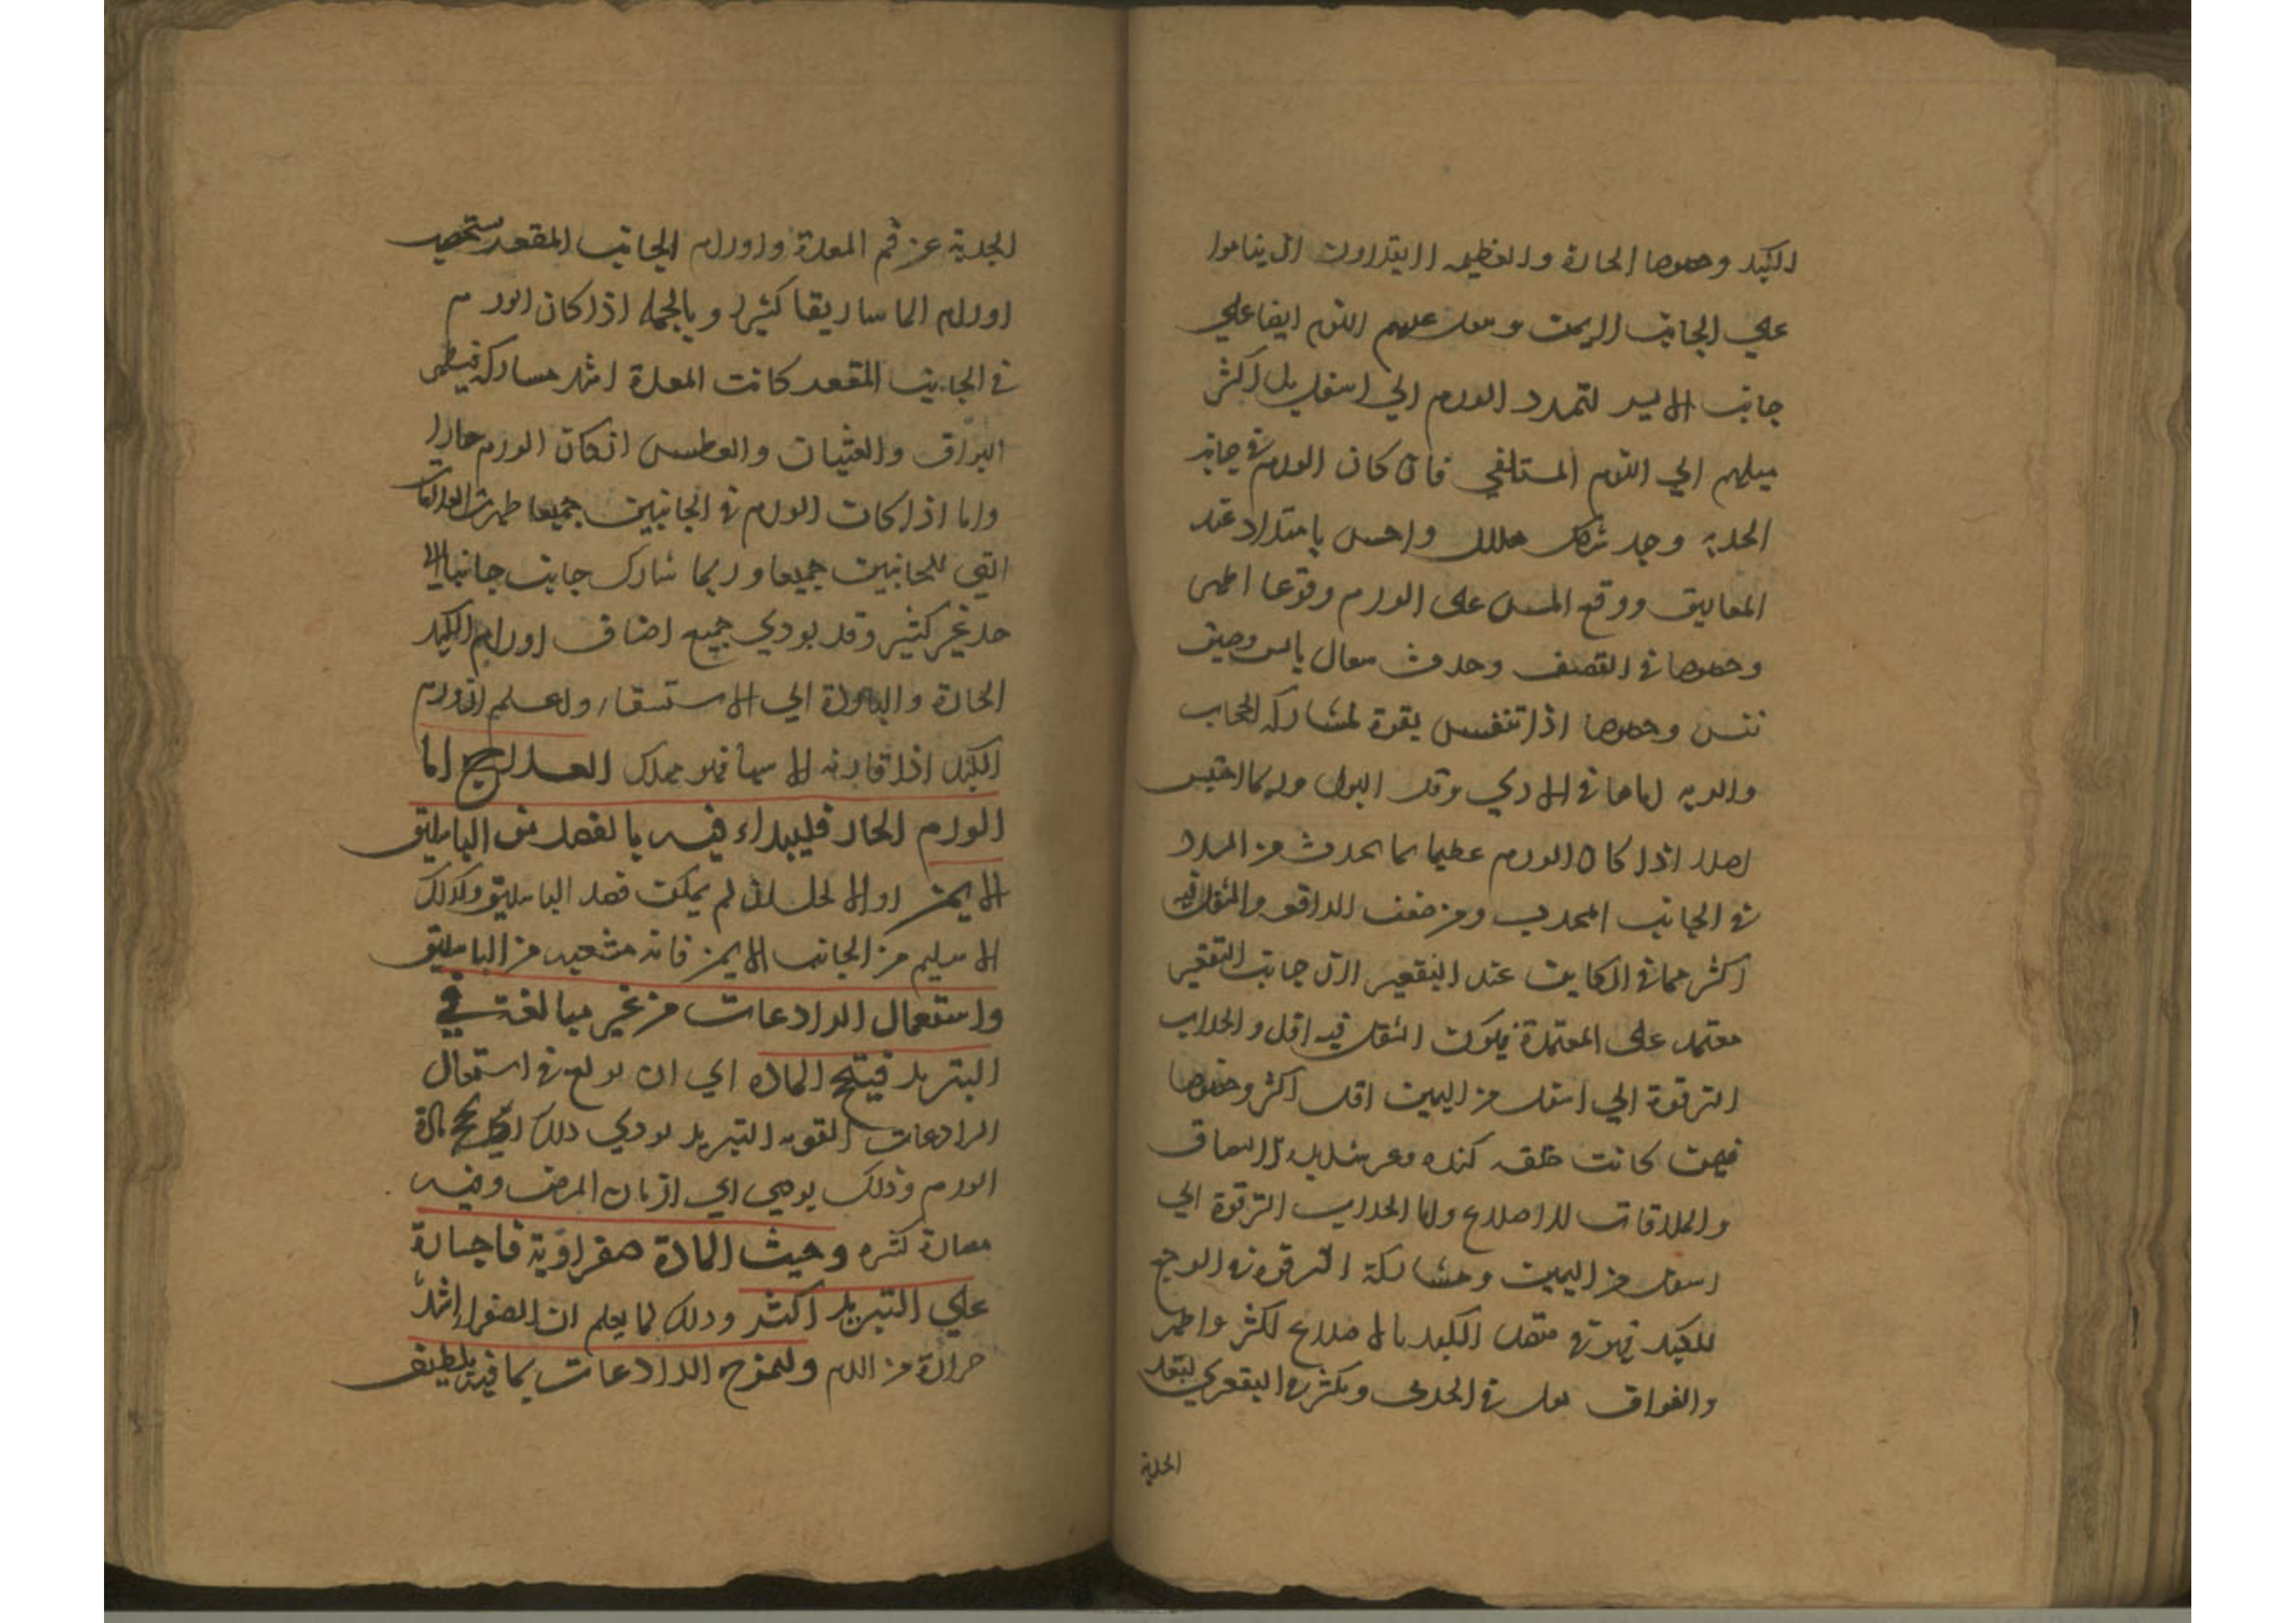 الكبد وخصوصا الحارة والعظيمه لا يقدرون ان يناموا
علي الجانب الايمن و عليهم النوم ايضا علي
جانب الايسر لتمدد الورم الي اسفل بل اكثر
ميلهم الي النوم المستلقي فان كان الورم في جانب
الحدبه وجد واحس بامتداد عند
المعاليق ووقع المس على الورم وقوعا اظهر
وخصوصا في وحدث سعال يابس وضيق
نفس وخصوصا اذا تنفس بقوة لمشاركه الحجاب
والريه اياها في الاذي وقل البول وربما احتبس
اصلا اذا كان الورم عظيما لما يحدث من السدد
في الجانب المحدب ومن ضعف الدافعه والثقل فيه
اكثر مما في الكاين عند التقعير لان جانب التقعير
معتمد على المعدة فيكون الثقل فيه اقل وانجذاب
الترقوة الي اسفل من اليمين اكثر وخصوصا
فيمن كانت خلقه كبده شديده الالتصاق
والملاقات للاضلاع واما انجذاب الترقوة الي
اسفل من اليمين ومشاركة الترقوه في الوجع
للكبد فهو في متصل الكبد بالاضلاع اكثر واظهر
والفواق يقل في الحدبي ويكثر في التقعيري لبعد
الحدبة
الحدبة عن فم المعدة واورام الجانب المقعر يستصحب
اورام الماساريقا كثيرا وبالجمله اذا كان الورم
في الجانب المقعر كانت المعدة اشد مشاركه فيظهر
البراق والغثيان والعطس ان كان الورم حارا
واما اذا كان الورم في الجانبين جميعا ظهرت العلامات
التي للجانبين جميعا وربما شارك جانب جانبا الي
حد غير كثير وقد يودي جميع اصناف اورام الكبد
الحارة والباردة الي الاستسقاء واعلم ان ورم
الكبد اذا قارنه الاسهال فهو مهلك العلاج اما
الورم الحار فليبداء فيه بالفصد من الباسليق
الايمن او الاكحل ان لم يمكن فصد الباسليق وكذلك
الاسيلم من الجانب الايمن فانه متشعب من الباسليق
واستعمال الرادعات من غير مبالغة في
التبريد فيتحجر المادة اي ان بولغ في استعمال
الرادعات القويه التبريد يودي ذلك الي تحجر مادة
الورم وذلك يودي الي ازمان المرض وفيه
مضارة كثيره وحيث المادة صفراوية فاجسارة
علي التبريد اكثر وذلك لما يعلم ان الصفرا اشد
حرارة من الدم وليمزج الرادعات بما فيه تلطيف